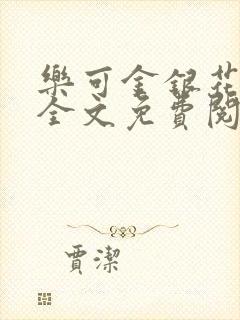 樂可金銀花
全文免費閱
賈潔